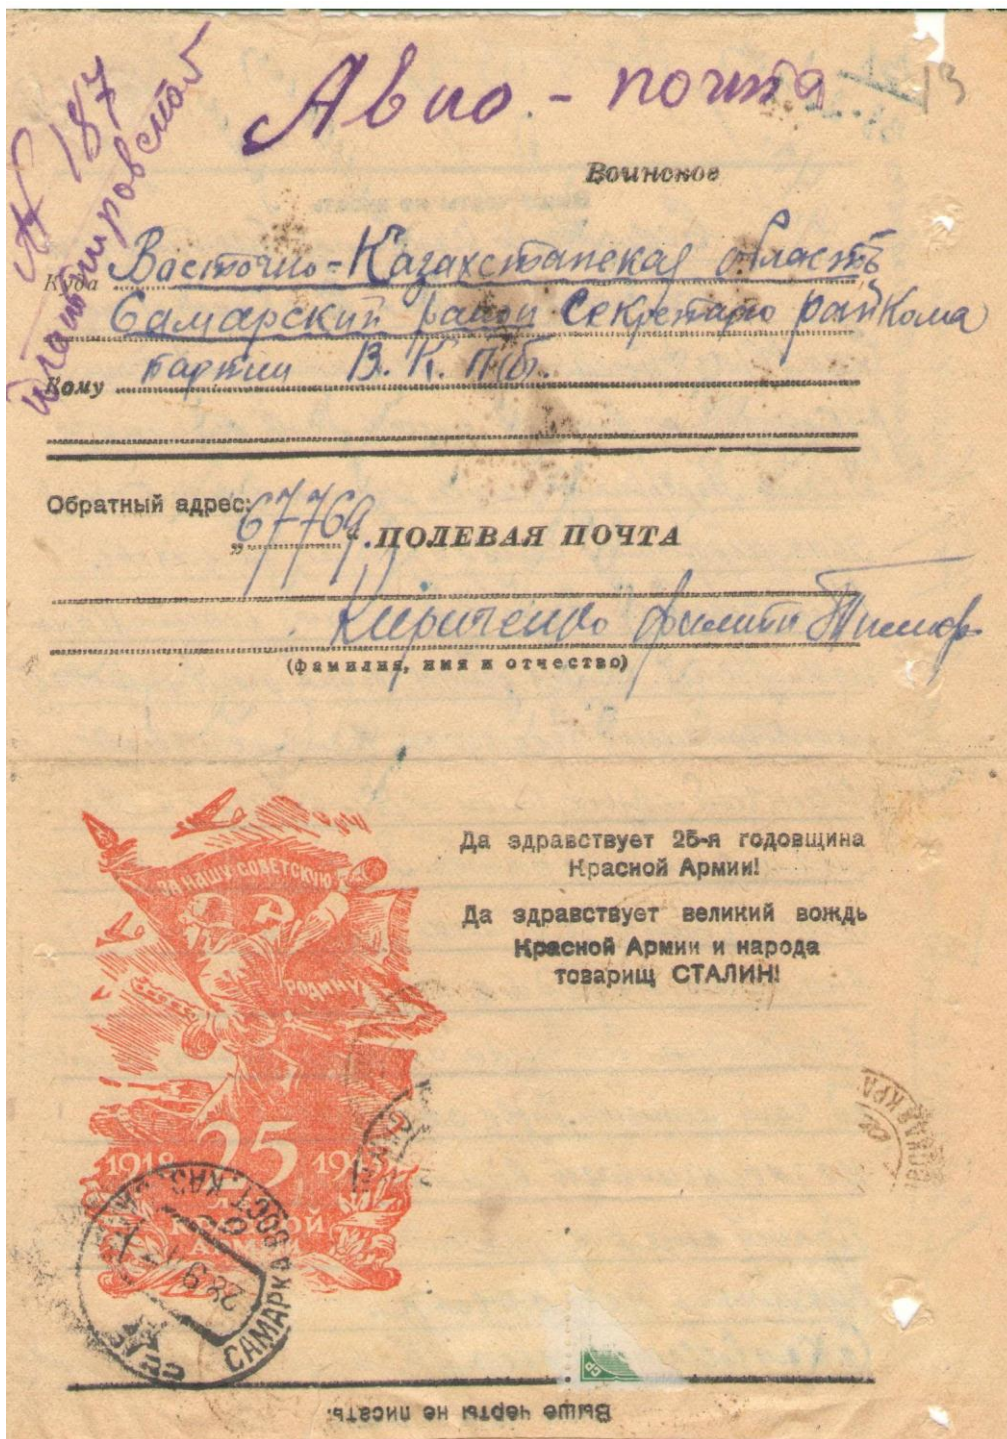 Авио - почта
13
№ 187
Воинское
Куда Васточно-Казахстанская область
Самарский район Секретарю райкома
Кому партии В. К. П/б.
Обратный адрес:
„67769“ ПОЛЕВАЯ ПОЧТА
Кириченко Филипп Тимоф
(фамилия, имя и отчество)
ЗА НАШУ СОВЕТСКУЮ
РОДИНУ
25
1918 1943
КРАСНОЙ
АРМИИ
Да здравствует 25-я годовщина
Красной Армии!
Да здравствует великий вождь
Красной Армии и народа
товарищ СТАЛИН!
САМАРКА ВОСТ. КАЗ.
28 9
СССР
Выше черты не писать.